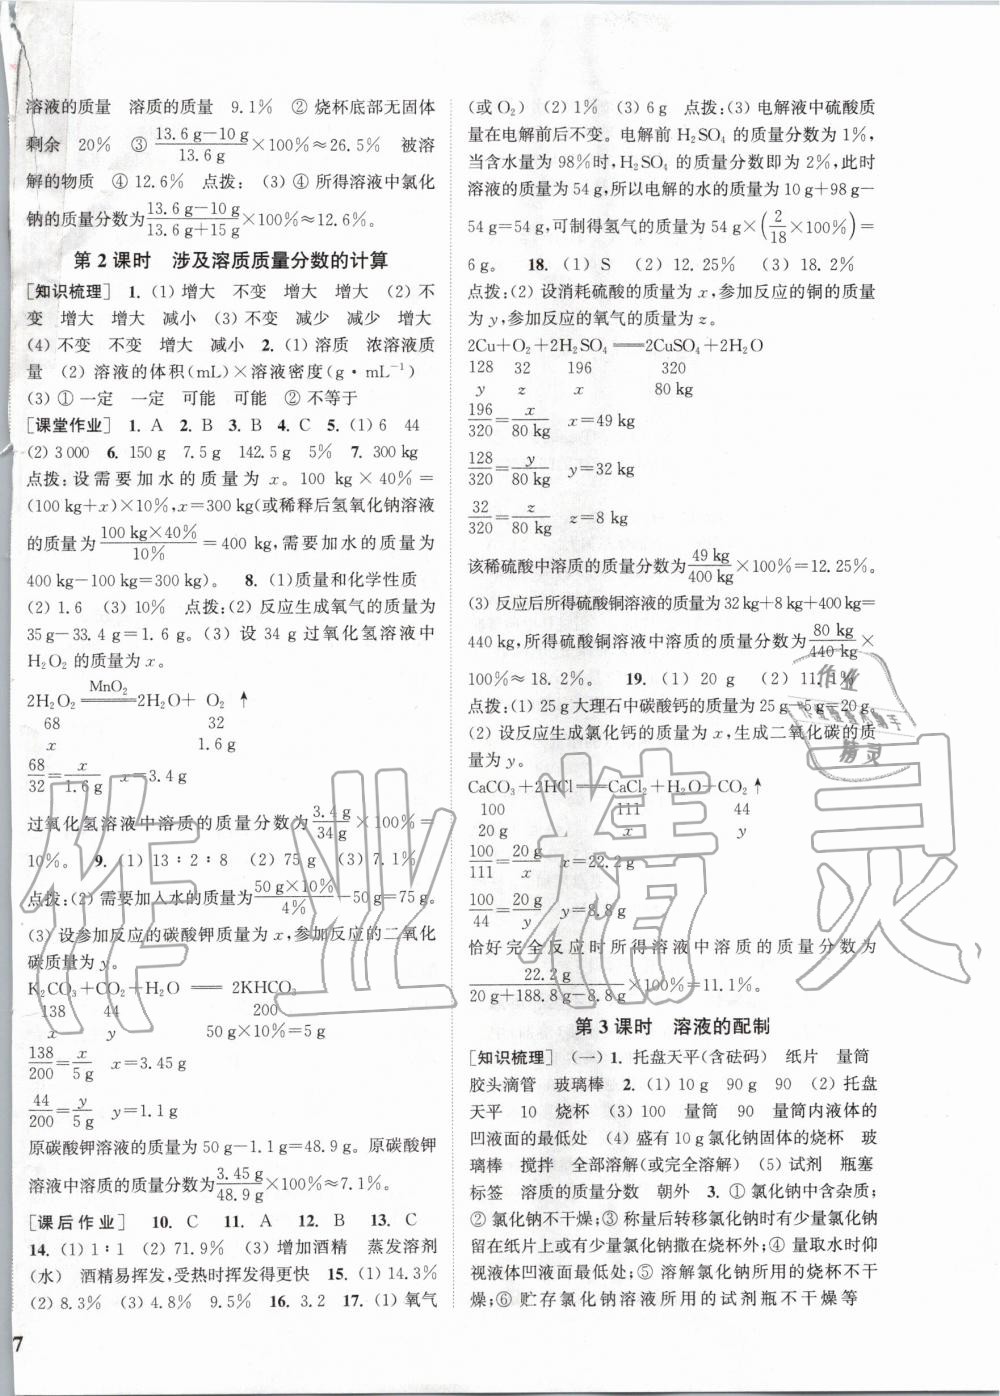 溶液的质量　溶质的质量　9.1%　② 烧杯底部无固体
剩余　20%　③ (13.6 g－10 g)/(13.6 g)×100%≈26.5%　被溶
解的物质　④ 12.6%　点拨：(3) ④ 所得溶液中氯化
钠的质量分数为(13.6 g－10 g)/(13.6 g＋15 g)×100%≈12.6%。
第 2 课时　涉及溶质质量分数的计算
[知识梳理]　1. (1) 增大　不变　增大　增大　(2) 不
变　增大　增大　减小　(3) 不变　减少　减少　增大
(4) 不变　不变　增大　减小　2. (1) 溶质　浓溶液质
量　(2) 溶液的体积(mL)×溶液密度(g·mL⁻¹)
(3) ① 一定　一定　可能　可能　② 不等于
[课堂作业]　1. A　2. B　3. B　4. C　5. (1) 6　44
(2) 3 000　6. 150 g　7.5 g　142.5 g　5%　7. 300 kg
点拨：设需要加水的质量为 x。100 kg×40%＝
(100 kg＋x)×10%,x＝300 kg(或稀释后氢氧化钠溶液
的质量为(100 kg×40%)/(10%)＝400 kg,需要加水的质量为
400 kg－100 kg＝300 kg)。　8. (1)质量和化学性质
(2) 1.6　(3) 10%　点拨：(2) 反应生成氧气的质量为
35 g－33.4 g＝1.6 g。(3) 设 34 g 过氧化氢溶液中
H₂O₂ 的质量为 x。
MnO₂
2H₂O₂══2H₂O＋O₂↑
68　32
x　1.6 g
68/32＝x/(1.6 g)　x＝3.4 g
过氧化氢溶液中溶质的质量分数为(3.4 g)/(34 g)×100%＝
10%。　9. (1) 13∶2∶8　(2) 75 g　(3) 7.1%
点拨：(2) 需要加入水的质量为(50 g×10%)/(4%)－50 g＝75 g。
(3) 设参加反应的碳酸钾质量为 x,参加反应的二氧化
碳质量为 y。
K₂CO₃＋CO₂＋H₂O══2KHCO₃
138　44　200
x　y　50 g×10%＝5 g
138/200＝x/(5 g)　x＝3.45 g
44/200＝y/(5 g)　y＝1.1 g
原碳酸钾溶液的质量为 50 g－1.1 g＝48.9 g。原碳酸钾
溶液中溶质的质量分数为(3.45 g)/(48.9 g)×100%≈7.1%。
[课后作业]　10. C　11. A　12. B　13. C
14. (1) 1∶1　(2) 71.9%　(3) 增加酒精　蒸发溶剂
(水)　酒精易挥发,受热时挥发得更快　15. (1) 14.3%
(2) 8.3%　(3) 4.8%　9.5%　16. 3.2　17. (1) 氧气
7
(或 O₂)　(2) 1%　(3) 6 g　点拨：(3) 电解液中硫酸质
量在电解前后不变。电解前 H₂SO₄ 的质量分数为 1%,
当含水量为 98%时,H₂SO₄ 的质量分数即为 2%,此时
溶液的质量为 54 g,所以电解的水的质量为 10 g＋98 g－
54 g＝54 g,可制得氢气的质量为 54 g×(2/18×100%)＝
6 g。　18. (1) S　(2) 12.25%　(3) 18.2%
点拨：(2) 设消耗硫酸的质量为 x,参加反应的铜的质量
为 y,参加反应的氧气的质量为 z。
2Cu＋O₂＋2H₂SO₄══2CuSO₄＋2H₂O
128　32　196　320
y　z　x　80 kg
196/320＝x/(80 kg)　x＝49 kg
128/320＝y/(80 kg)　y＝32 kg
32/320＝z/(80 kg)　z＝8 kg
该稀硫酸中溶质的质量分数为(49 kg)/(400 kg)×100%＝12.25%。
(3) 反应后所得硫酸铜溶液的质量为 32 kg＋8 kg＋400 kg＝
440 kg,所得硫酸铜溶液中溶质的质量分数为(80 kg)/(440 kg)×
100%≈18.2%。　19. (1) 20 g　(2) 11.1%
点拨：(1) 25 g 大理石中碳酸钙的质量为 25 g－5 g＝20 g。
(2) 设反应生成氯化钙的质量为 x,生成二氧化碳的质
量为 y。
CaCO₃＋2HCl══CaCl₂＋H₂O＋CO₂↑
100　111　44
20 g　x　y
100/111＝(20 g)/x　x＝22.2 g
100/44＝(20 g)/y　y＝8.8 g
恰好完全反应时所得溶液中溶质的质量分数为
(22.2 g)/(20 g＋188.8 g－8.8 g)×100%＝11.1%。
第 3 课时　溶液的配制
[知识梳理]　(一) 1. 托盘天平(含砝码)　纸片　量筒
胶头滴管　玻璃棒　2. (1) 10 g　90 g　90　(2) 托盘
天平　10　烧杯　(3) 100　量筒　90　量筒内液体的
凹液面的最低处　(4) 盛有 10 g 氯化钠固体的烧杯　玻
璃棒　搅拌　全部溶解(或完全溶解)　(5) 试剂　瓶塞
标签　溶质的质量分数　朝外　3. ① 氯化钠中含杂质；
② 氯化钠不干燥；③ 称量后转移氯化钠时有少量氯化钠
留在纸片上或有少量氯化钠撒在烧杯外；④ 量取水时仰
视液体凹液面最低处；⑤ 溶解氯化钠所用的烧杯不干
燥；⑥ 贮存氯化钠溶液所用的试剂瓶不干燥等
作业精灵
作业
精灵